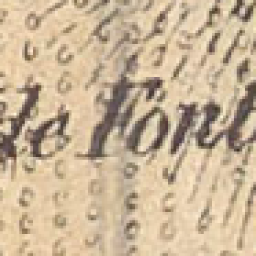 de Font